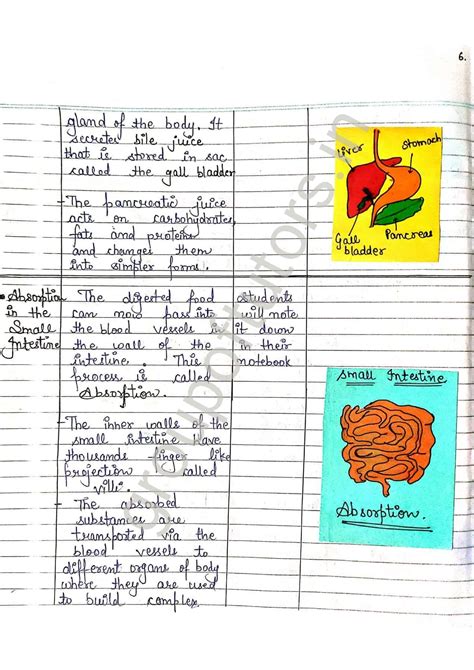 6.
gland of the body. It
secretes bile juice
that is stored in sac
called the gall bladder
- The pancreatic juice
acts on carbohydrates,
fats and proteins
and changes them
into simpler forms.
Liver
Stomach
Gall
bladder
Pancreas
• Absorption
in the
Small
Intestine
The digested food
can now pass into
the blood vessels in
the wall of the
intestine. This
process is called
Absorption.
students
will note
it down
in their
notebook
- The inner walls of the
small intestine have
thousands finger like
projection called
villi.
- The absorbed
substances are
transported via the
blood vessels to
different organs of body
where they are used
to build complex
Small Intestine
Absorption.
groupoftutors.in